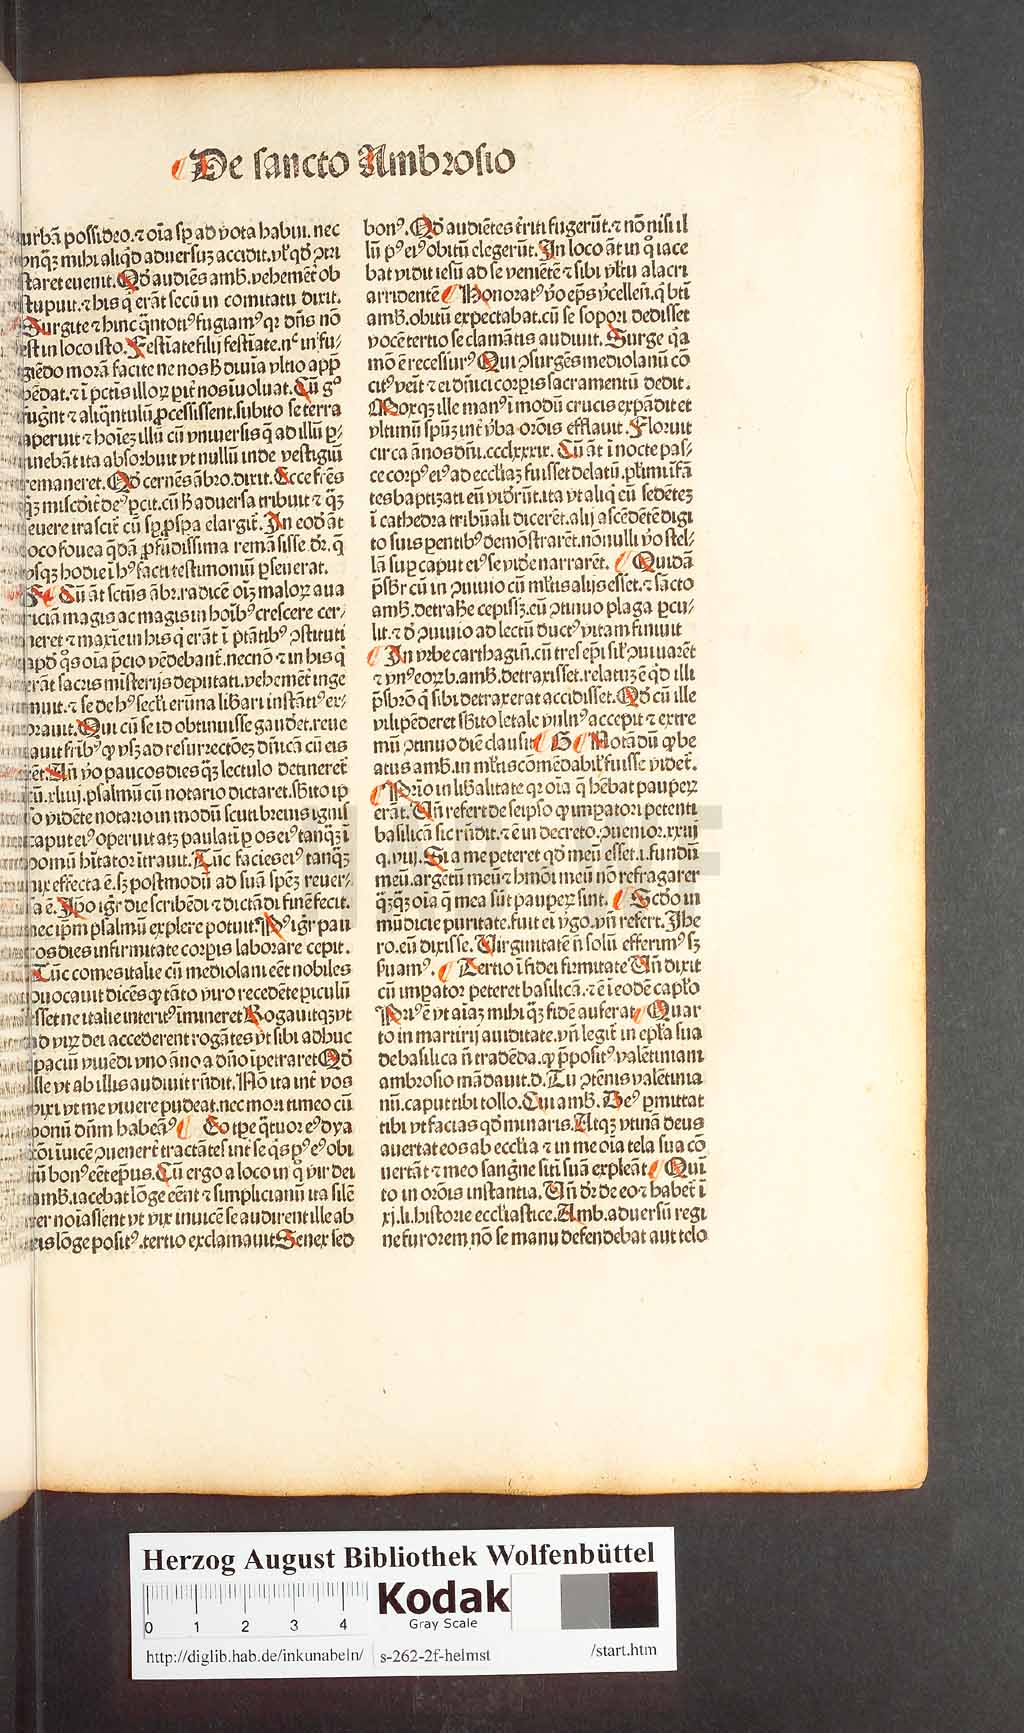 De sancto Ambrosio
urbã possideo.⁊ oĩa sp ad vota habui. nec
vnqȝ mihi aliqd aduersuȝ accidit.vlʼ qd ↄtri
staret euenit. Qd audiẽs amb. vehemẽt ob
stupuit.⁊ his q erãt secũ in comitatu dixit.
Surgite ⁊ hinc qͣntotiꝰ fugiamꝰ qꝛ dñs nõ
est in loco isto. Festiate filij festiate.nͤ in fu⸗
giẽdo morã facite ne nos hͦ diuĩa vltio app̃
pẽdat.⁊ ĩ pctis illoꝝ pit nos ĩuoluat. Cũ gͦ
fugñt ⁊ aliqͣntulũ ꝓcessissent.subito se terra
aperuit ⁊ hoĩeȝ illũ cũ vniuersis q ad illũ p⸗
tinebãt ita absorbuit vt nullũ inde vestigiũ
remaneret. Qd cernẽs ãbro.dixit. Ecce frẽs
qͣȝ misc̃dit deꝰ pcit.cũ hͦ aduersa tribuit ⁊ qͣȝ
seuere irascit cũ sp ꝓspa elargit. In eod ãt
loco fouea qͣdã ꝓfũdissima remãsisse dr̃. q
vsqȝ hodie ĩ hꝰ facti testimoniũ pseuerat.
Cũ ãt sctũs ãbr.radicẽ oĩȝ maloꝝ aua
riciã magis ac magis in hoĩbꝰ crescere cer⸗
neret ⁊ maxĩe in his q erãt ĩ ptãtibꝰ ↄstituti
apd qͦs oĩa p̃cio vẽdebant.necnõ ⁊ in his q
erãt sacris misterijs deputati.vehemẽt inge
muit.⁊ se de hꝰ seclʼi erũna libari instãtiꝰ ex⸗
orauit. Qui cũ se id obtinuisse gaudet.reue
lauit fribꝰ ꝙ vsȝ ad resurrectõeȝ dñicã cũ eis
eẽt. Añ vo paucos dies qͣȝ lectulo detineret
cũ.xliij.psalmũ cũ notario dictaret.sbito ip
so vidẽte notario in modũ scuti breuis ignis
caput eiꝰ operuit atȝ paulatĩ p os eiꝰ tanqͣȝ ĩ
domũ hĩtator ĩtrauit. Tũc facies eiꝰ tanqͣȝ
nix effecta ẽ.sȝ postmodũ ad suã spẽȝ reuer⸗
sa ẽ. Ipo igr die scribẽdi ⁊ dictãdi finẽ fecit.
nec ipm psalmũ explere potuit. Pꝰ igr pau
cos dies infirmitate corpis laborare cepit.
Tũc comes italie cũ mediolani eẽt nobiles
ↄuocauit dicẽs ꝙ tãto viro recedẽte piculũ
esset ne italie interitꝰ ĩmineret Rogauitqȝ vt
ad viȝ dei accederent rogãtes vt sibi adhuc
spaciũ viuẽdi vno ãno a dño ĩpetraret Qd
ille vt ab illis audiuit rñdit. Nõ ita inť vos
vixi vt me viuere pudeat.nec mori timeo cũ
bonũ dñm habeãꝰ Eo tpe qͣtuor eꝰ dya
cõi ĩuicẽ ↄuenerñt tractãtes inť se qͥs pꝰ eꝰ obi
tũ bonꝰ eẽt epus. Cũ ergo a loco in q vir dei
amb.iacebat lõge eẽnt ⁊ simplicianũ ita silẽ
ter noĩassent vt vix inuicẽ se audirent ille ab
eis lõge positꝰ.tertio exclamauit Senex sed
bonꝰ. Qd audiẽtes trĩti fugerũt.⁊ nõ nisi il
lũ pꝰ eiꝰ obitũ elegerũt. In loco ãt in q iace
bat vidit iesũ ad se veniẽtẽ ⁊ sibi vltu alacri
arridentẽ Honoratꝰ vo eps vcelleñ.q bti
amb.obitũ expectabat.cũ se sopori dedisset
vocẽ tertio se clamãtis audiuit. Surge qꝛ a
mõ ẽ recessurꝰ Qui ↄsurgẽs mediolanũ cõ
citꝰ veit ⁊ ei dñici corpis sacramentũ dedit.
Moxqȝ ille manꝰ ĩ modũ crucis expãdit et
vltimũ spũȝ inť vba orõis efflauit. Floruit
circa ãnos dñi.ccclxxxix. Cũ ãt ĩ nocte pas⸗
ce corpꝰ eiꝰ ad eccliaȝ fuisset delatũ.plimi ĩfã
tes baptizati eũ viderũt.ita vt aliq cũ sedẽteȝ
ĩ cathedra tribũali dicerẽt.alij ascẽdẽtẽ digi
to suis pentibꝰ demõstrarẽt.nõnulli vo stel⸗
lã sup caput eiꝰ se vide narrarẽt. Quidã
psbr cũ in ↄuiuio cũ mltis alijs esset.⁊ sãcto
amb.detrahẽ cepisȝ.eũ ↄtinuo plaga pcu⸗
lit.⁊ d ↄuiuio ad lectũ ductꝰ vitam finiuit
In vrbe carthagiñ.cũ tres epi silʼ ↄuiuarẽt
⁊ vnꝰ eoꝝ b.amb.detraxisset.relatuȝ ẽ qd illi
psbro q sibi detraxerat accidisset. Qd cũ ille
vilipẽderet sbito letale vulnꝰ accepit ⁊ extre
mũ ↄtinuo diẽ clausit G Notãdũ ꝙ be
atus amb.in mltis cõmẽdabilʼ fuisse videt.
Prio in libalitate qꝛ oĩa q hẽbat paupeꝝ
erãt. Uñ refert de seipso ꝙ impatori petenti
basilicã sic rñdit.⁊ ẽ in decreto.ↄuenior.xxiij
q.viij. Si a me peteret qd meũ esset.i.fundũ
meũ.argẽtũ meũ ⁊ hmõi meũ nõ refragarer
qͣȝqͣȝ oĩa q mea sũt paupeꝝ sint. Scdo in
mũdicie puritate.fuit ei vgo.vñ refert. Ihe
ro.eũ dixisse. Uirginitatẽ ñ solũ efferimꝰ sȝ
suamꝰ. Tertio ĩ fidei firmitate Uñ dixit
cũ impator peteret basilicã.⁊ ẽ ĩ eodẽ caplo
Priꝰ ẽ vt aĩaȝ mihi qͣȝ fidẽ auferat Quar
to in martirij auiditate.vñ legit in epla sua
de basilica ñ tradẽda.ꝙ p̃positꝰ valẽtiniani
ambrosio mãdauit.d. Tu ↄtẽnis valẽtinia
nũ.caput tibi tollo. Cui amb. Deꝰ pmittat
tibi vt facias qd minaris. Atqȝ vtinã deus
auertat eos ab ecclia ⁊ in me oĩa tela sua cõ
uertãt ⁊ meo sangne sitĩ suã expleãt Quĩ
to in orõis instantia. Uñ dr̃ de eo ⁊ habet ĩ
xj.li.historie eccliastice. Amb.aduersũ regi
ne furorem.nõ se manu defendebat aut telo
Herzog August Bibliothek Wolfenbüttel
0 1 2 3 4
Kodak
Gray Scale
http://diglib.hab.de/inkunabeln/ s-262-2f-helmst /start.htm
HAB WF